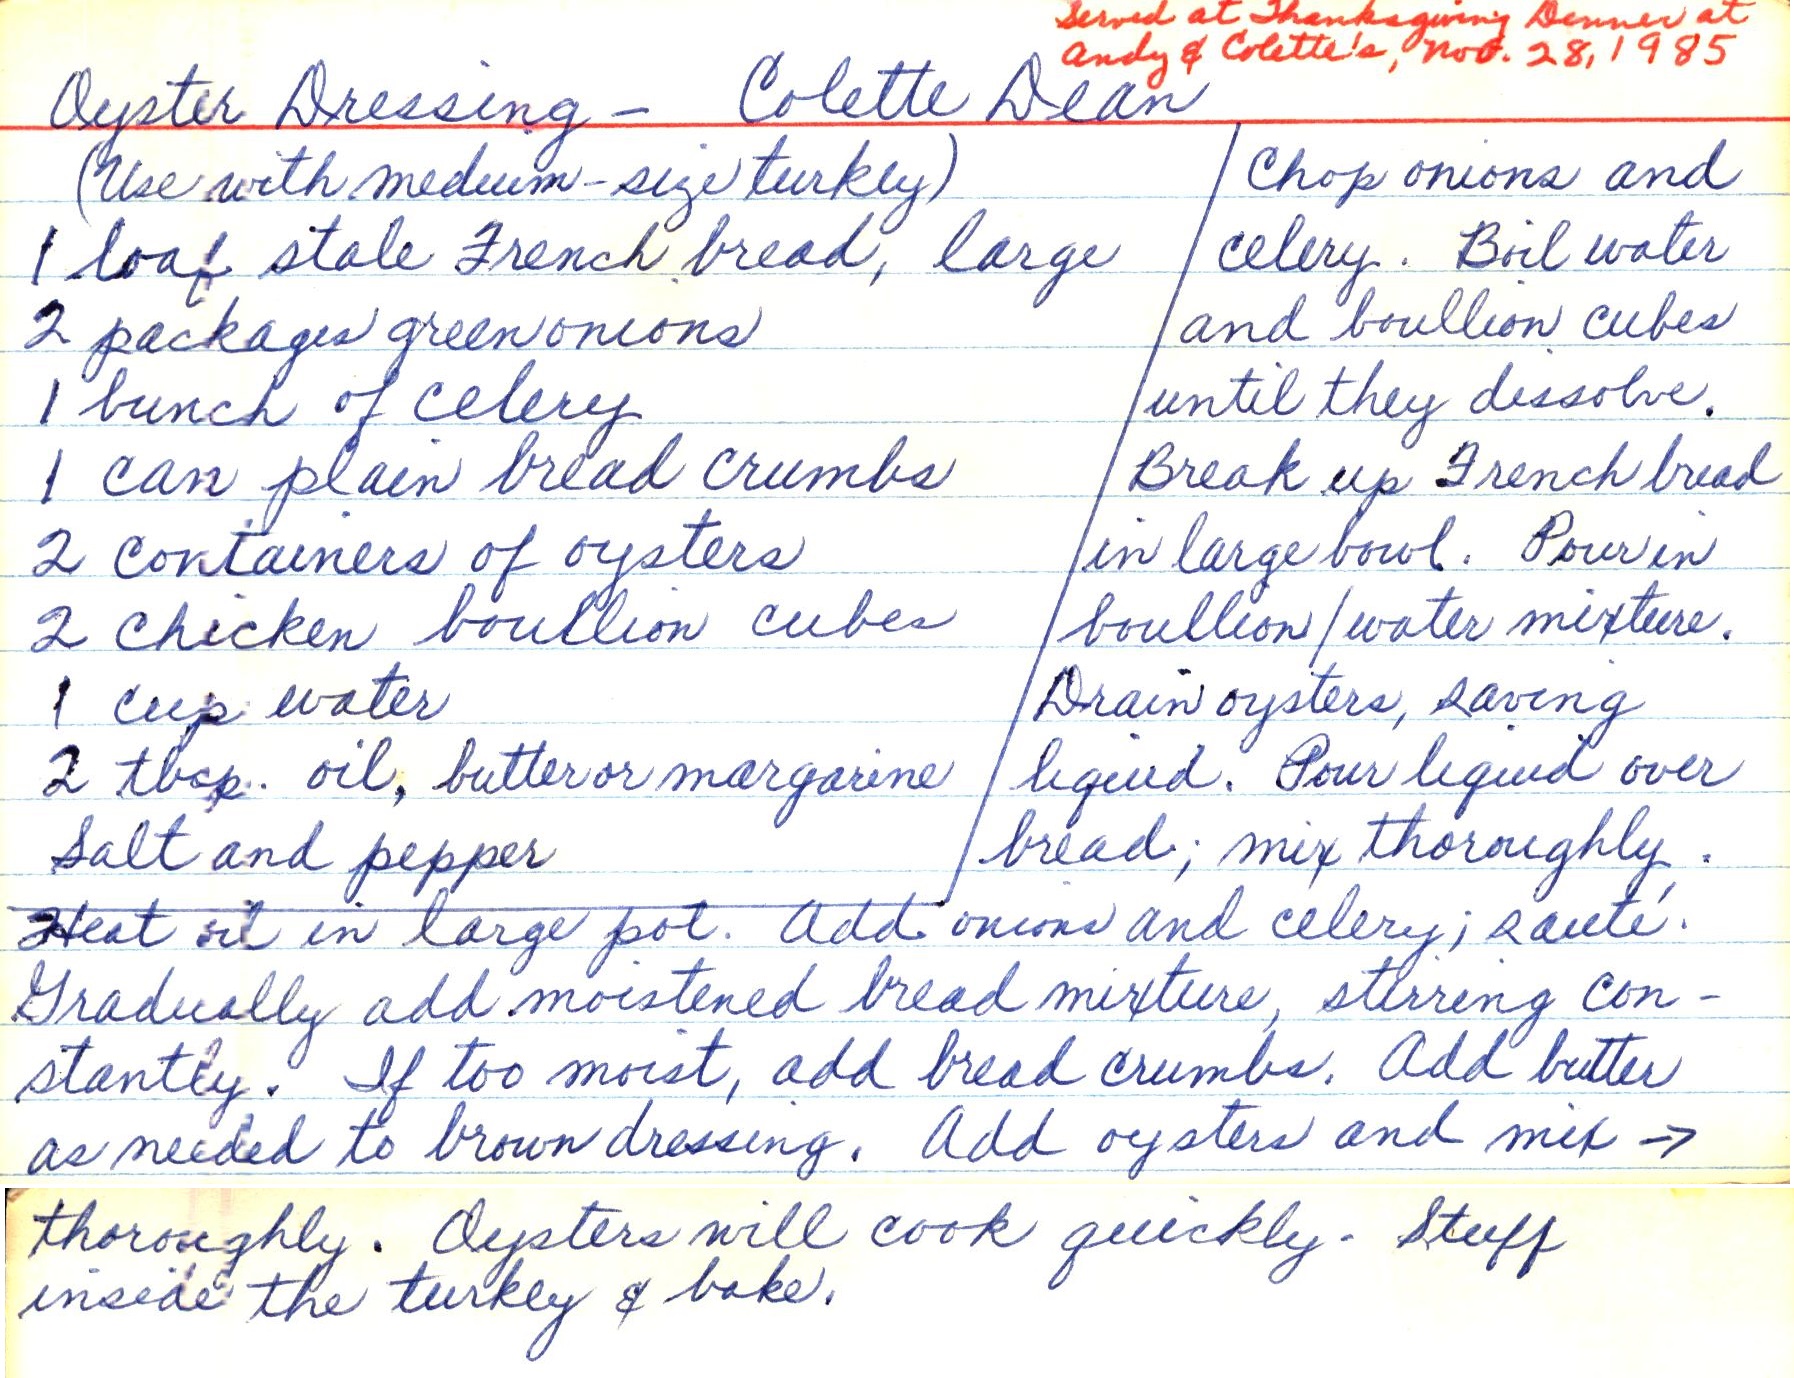 Served at Thanksgiving Dinner at
Andy & Colette's, Nov. 28, 1985
Oyster Dressing - Colette Dean
(Use with medium-size turkey)
1 loaf stale French bread, large
2 packages green onions
1 bunch of celery
1 can plain bread crumbs
2 containers of oysters
2 chicken boullion cubes
1 cup water
2 tbsp. oil, butter or margarine
Salt and pepper
Chop onions and
celery. Boil water
and boullion cubes
until they dissolve.
Break up French bread
in large bowl. Pour in
boullion/water mixture.
Drain oysters, saving
liquid. Pour liquid over
bread; mix thoroughly.
Heat oil in large pot. Add onions and celery; sauté.
Gradually add moistened bread mixture, stirring con-
stantly. If too moist, add bread crumbs. Add butter
as needed to brown dressing. Add oysters and mix →
thoroughly. Oysters will cook quickly. Stuff
inside the turkey & bake.